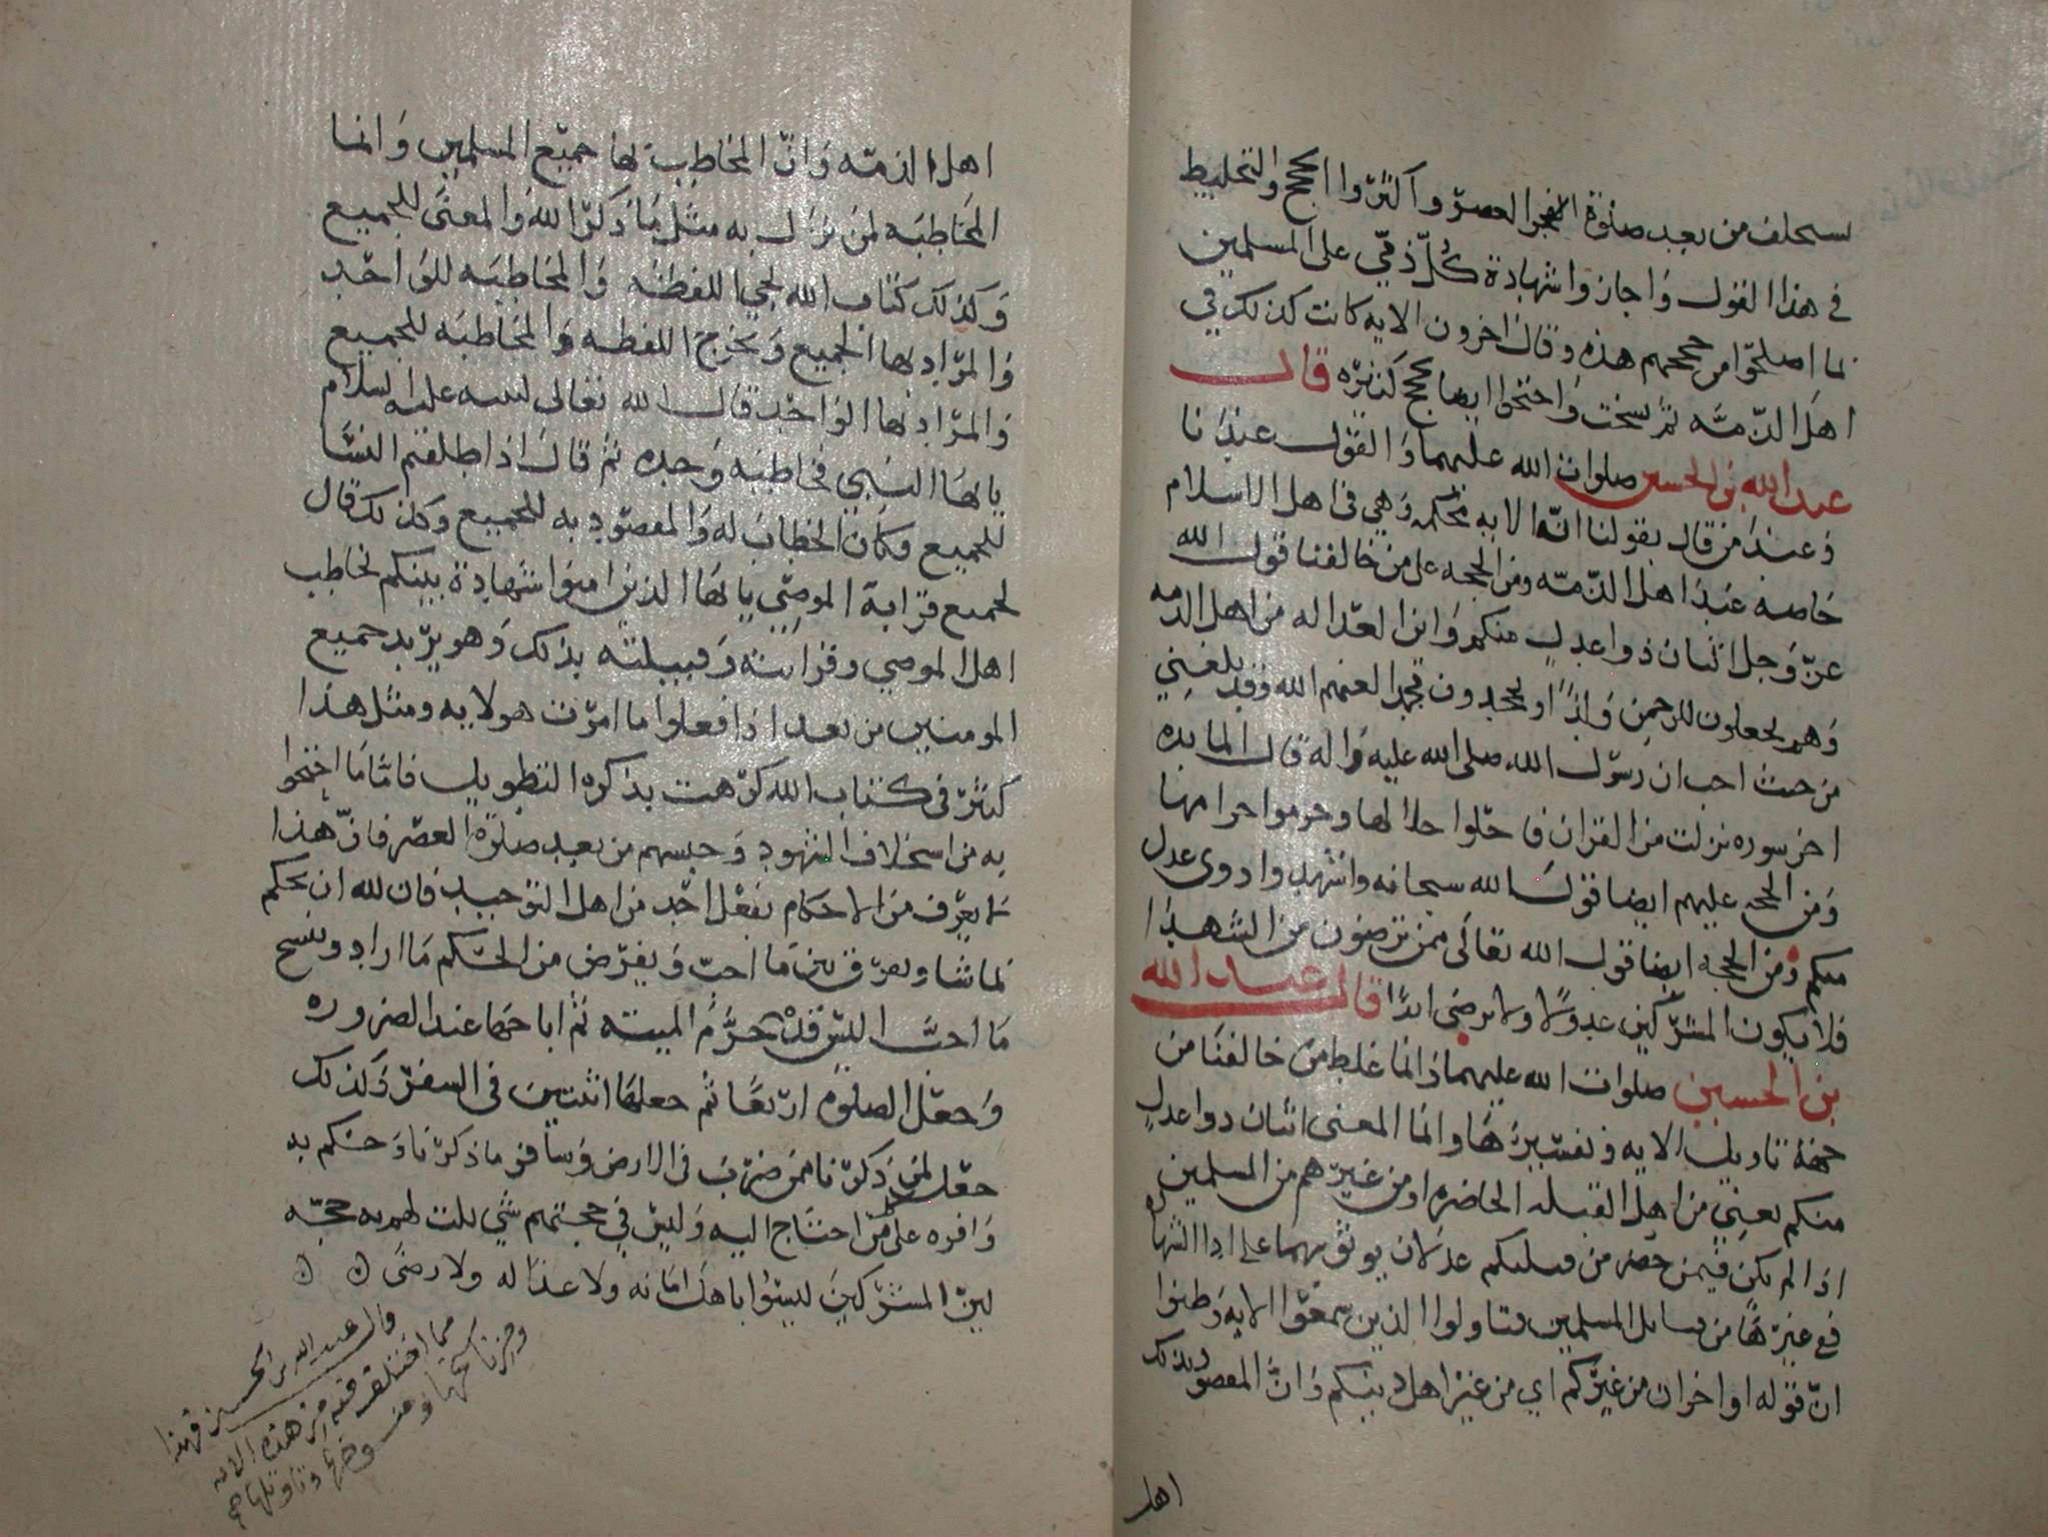 يستحلف من بعد صلوة الفجر العصر واكثروا الحجج والتخليط
في هذا القول واجازوا شهادة كل ذمي على المسلمين
بما اصلحوا من حججهم هذه وقال اخرون الايه كانت كذلك في
اهل الذمه ثم نسخت واحتجوا ايضا بحجج كثيره قال
عبد الله بن الحسين صلوات الله عليهما والقول عندنا
وعند من قال بقولنا ان الايه محكمه وهي في اهل الاسلام
خاصه عند اهل الذمه ومن الحجه على من خالفنا قول الله
عز وجل اثنان ذوا عدل منكم واين العداله من اهل الذمه
وهم يجعلون للرحمن ولدًا او يجحدون محمد العنهم الله وقد بلغني
من حيث احب ان رسول الله صلى الله عليه واله قال المايده
اخر سوره نزلت من القران فاحلوا حلالها وحرموا حرامها
ومن الحجه عليهم ايضا قول الله سبحانه واشهدوا ذوي عدل
منكم ومن الحجه ايضا قول الله تعالى ممن ترضون من الشهدا
فلا يكون المشركين عدولا ولا رضى ابدًا قال عبد الله
بن الحسين صلوات الله عليهما انما غلط من خالفنا من
جهة تاويل الايه وتفسيرها وانما المعنى اثنان ذوا عدل
منكم يعني من اهل القبيله الحاضره او من غيرهم من المسلمين
اذا لم يكن فيمن حضر من قبيلتكم عدلان يوثق بهما على ادا الشهاده
مع غيرها من قبايل المسلمين فتاولوا الذين سمعوا الايه وظنوا
ان قوله او اخران من غيركم اي من غير اهل دينكم وان المقصود بذلك
اهل
اهل الذمه وان المخاطب بها جميع المسلمين وانما
المخاطبه لمن نزل به مثل ما ذكر الله والمعنى للجميع
وكذلك كتاب الله يجي اللفظه والمخاطبه للواحد
والمراد بها الجميع ويخرج اللفظه والمخاطبه للجميع
والمراد بها الواحد قال الله تعالى لنبيه عليه السلام
يايها النبي فخاطبه وحده ثم قال اذا طلقتم النسا
للجميع فكان الخطاب له والمقصود به للجميع وكذلك قال
لجميع قرابة الموصي يايها الذين امنوا شهادة بينكم يخاطب
اهل الموصي وقرابته وقبيلته بذلك وهو يريد جميع
المومنين من بعد اذا فعلوا ما امرت هولا به ومثل هذا
كثير في كتاب الله كرهت بذكره التطويل فاما ما احتجوا
به من استحلاف الشهود وحبسهم من بعد صلوة العصر فان هذا
لا يعرف من الاحكام بفعل احد من اهل التوحيد فان لله ان يحكم
بما شا ويفرق بين ما احب ويفرض من الحكم ما اراد وينسخ
ما احب اليس قد حرم الميته ثم اباحها عند الضروره
وجعل الصلوه اربعًا ثم جعلها اثنتين في السفر وكذلك
جعل لمن ذكرنا ممن ضرب في الارض وسافر ما ذكرنا وحكم به
وافره على من احتاج اليه وليس في حجتهم شي يثبت لهم به حجه
لين المشركين ليسوا باهل امانه ولا عداله ولا رضى
قال عبد الله بن الحسين فهذا
مما اختلف فيه من هذه الايه
وفي ناسخها ومنسوخها وتاويلها صح